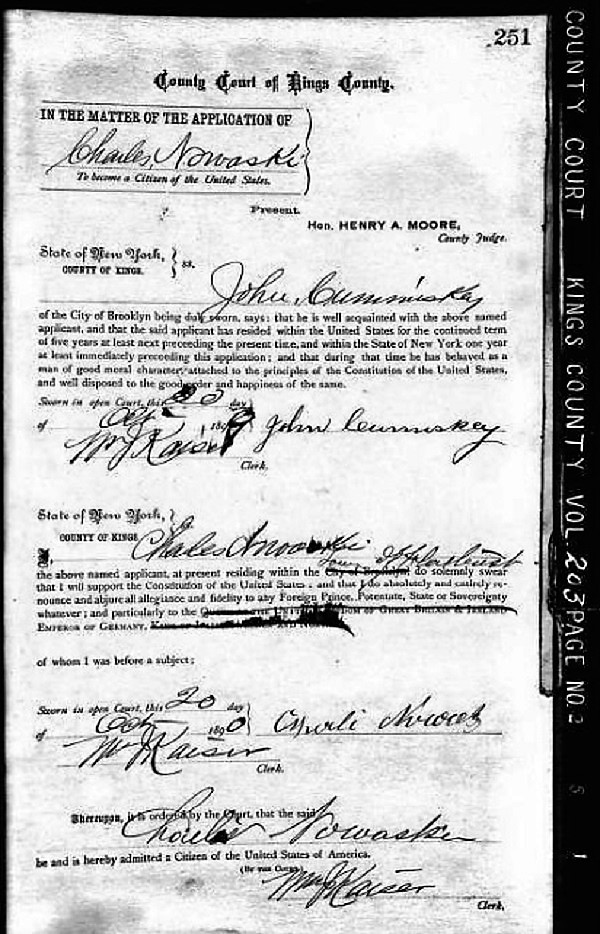 251
County Court of Kings County.
IN THE MATTER OF THE APPLICATION OF
Charles Nowaski
To become a Citizen of the United States.
Present.
Hon. HENRY A. MOORE,
County Judge.
State of New York,
COUNTY OF KINGS.
ss.
John Cummiskey
of the City of Brooklyn being duly sworn, says: that he is well acquainted with the above named
applicant, and that the said applicant has resided within the United States for the continued term
of five years at least next preceeding the present time, and within the State of New York one year
at least immediately preceeding this application; and that during that time he has behaved as a
man of good moral character, attached to the principles of the Constitution of the United States,
and well disposed to the good order and happiness of the same.
Sworn in open Court, this 20 day
of Oct 1890 John Cummiskey
Wm J Kaiser
Clerk.
State of New York,
COUNTY OF KINGS
Charles Nowaski
the above named applicant, at present residing within the City of Brooklyn do solemnly swear
that I will support the Constitution of the United States; and that I do absolutely and entirely re-
nounce and abjure all allegiance and fidelity to any Foreign Prince, Potentate, State or Sovereignty
whatever; and particularly to the UNITED KINGDOM OF GREAT BRITAIN & IRELAND
EMPEROR OF GERMANY,
of whom I was before a subject;
Sworn in open Court, this 20 day
of Oct 1890
Wm J Kaiser
Clerk.
Thereupon, it is ordered by the Court, that the said
Charles Nowaski
be and is hereby admitted a Citizen of the United States of America.
Wm J Kaiser
Clerk.
COUNTY COURT KINGS COUNTY VOL 203 PAGE NO. 251